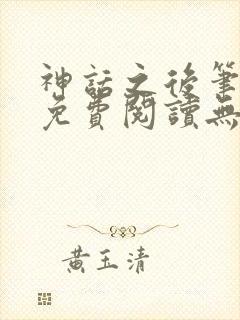 神話之後筆
免費閱讀無
黃玉清